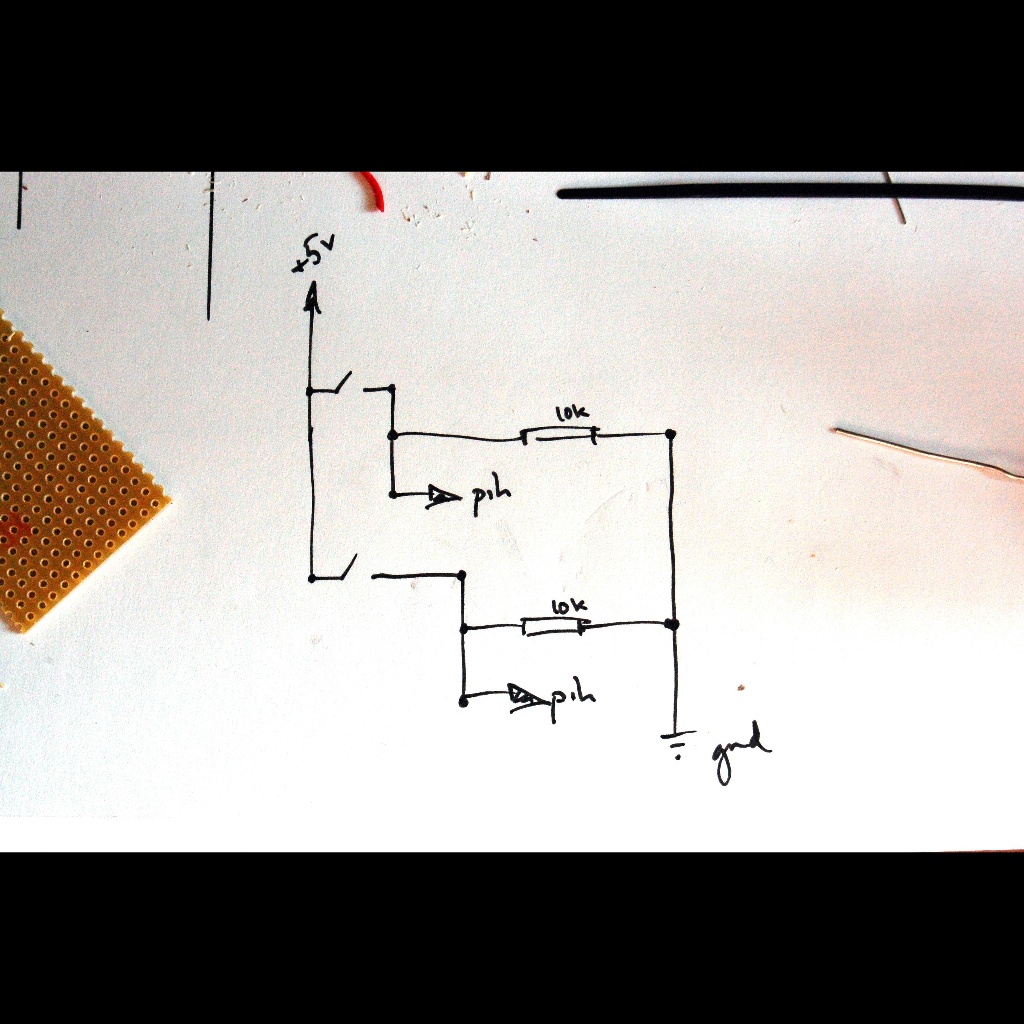 +5v
10k
pin
10k
pin
gnd